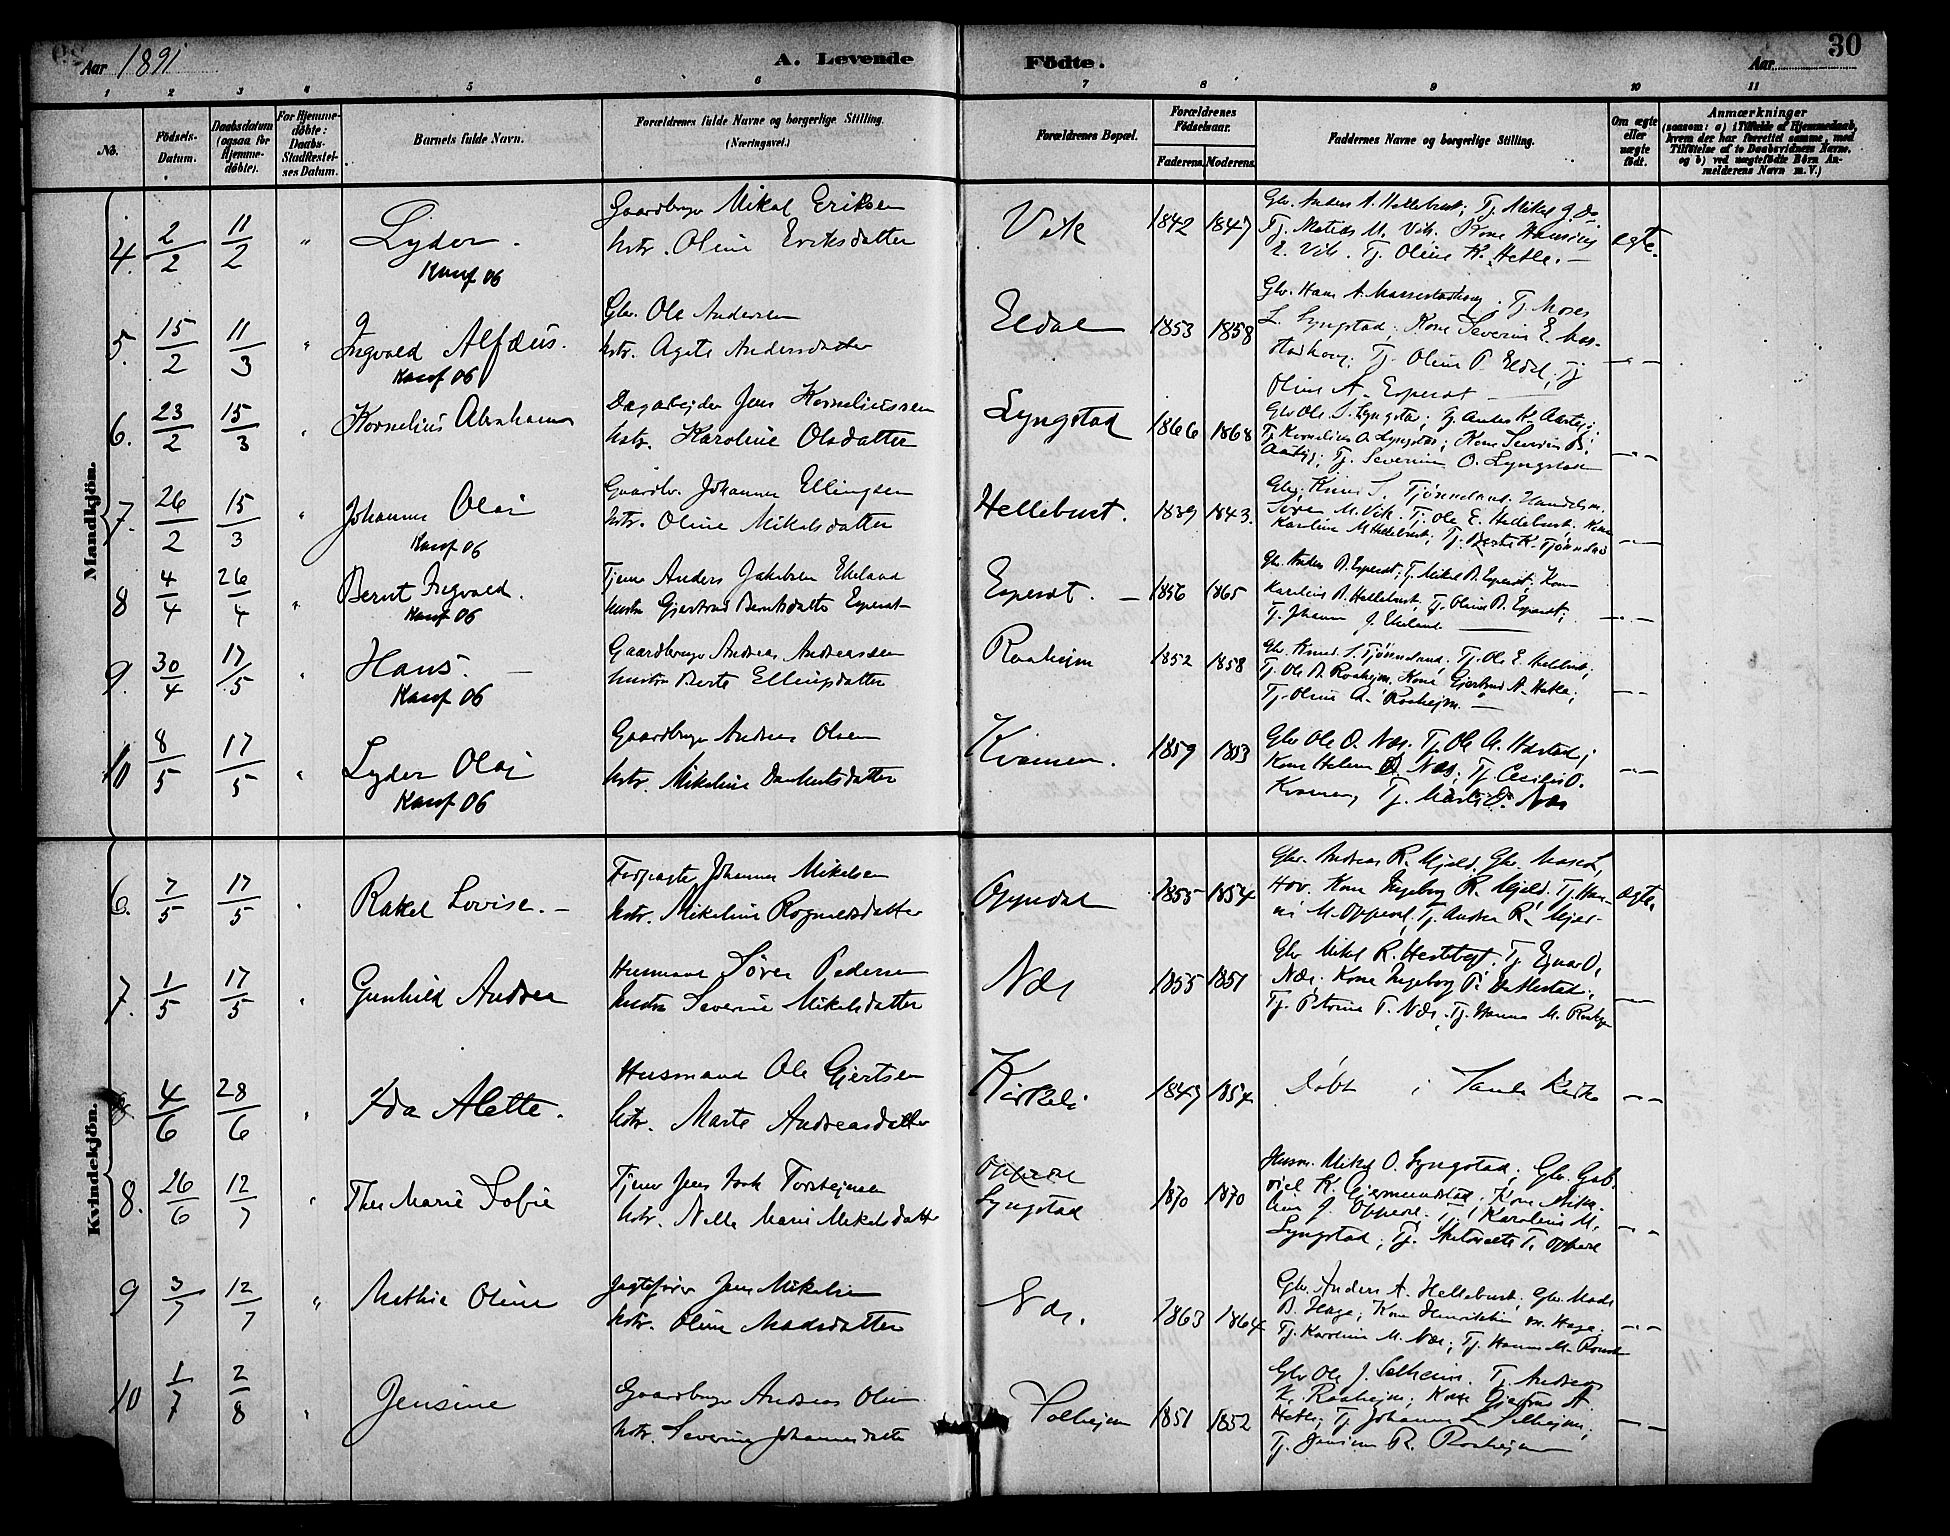 Aar 1891
A. Levende
Födte.
Aar
30
1 2 3 4 5 6 7 8 9 10 11
No.
Födsels-
Datum.
Daabsdatum
(ogsaa for
Hjemme-
döbte).
For Hjemme-
döbte:
Daabs-
Stadfæstel-
ses Datum.
Barnets fulde Navn.
Forældrenes fulde Navne og borgerlige Stilling.
(Næringsvei.)
Forældrenes Bopæl.
Forældrenes
Födselsaar.
Faderens. Moderens.
Faddernes Navne og borgerlige Stilling.
Om ægte
eller
uægte
födt.
Anmærkninger
(saasom: a) i Tilfælde af Hjemmedaab,
hvem der har forrettet samme, med
Tilföielse af to Daabsvidners Navne.
og b) ved uægtefödte Börn An-
melderens Navn m. V.)
Mandkjön.
4. 2/2 11/2 " Lyder. Konf 06
Gaardbruger Mikal Eriksen
hstr. Oline Eriksdatter
Vik 1842 1847
Gbr. Anders A. Hellebust; Tj. Mikal J. do.
Tj. Matias M. Vik. Kone
E. Vik. Tj. Oline K. Hetle. —
ægte.
5. 15/2 11/3 " Ingvald Alfæus. Konf 06
Gbr. Ole Andersen
hstr. Agate Andersdatter
Eldal 1853 1858
Gbr. Hans A. Tj. Moses
L. Lyngstad; Kone Severine E.
Tj. Oline P. Eldal; Tj
Oline A. Esperøt
— " —
6. 23/2 15/3 " Kornelius Abraham
Dagarbejder Jens Korneliussen
hstr. Karoline Olsdatter
Lyngstad 1866 1868
Gbr Ole S. Lyngstad; Tj Anders
Tj Kornelius O. Lyngstad; Kone Severine
Tj. Severine O. Lyngstad
— " —
7. 26/2 15/3 " Johannes Olai Konf 06
Gaardbr. Johannes Ellingsen
hstr. Oline Mikalsdatter
Hellebust. 1839 1843.
Gbr. Knut S. Tjønneland. Handelsm.
M. Vik. Tj. Ole E. Hellebust, Kone
Karoline M Hellebust; Tj. Berte K. Tjønneland
— " —
8 4/4 26/4 " Bernt Ingvald. Konf 06
Tjener Anders Jakobsen Ekeland
hustru Gjertrud Berntsdatter Esperøt
Esperøt. — 1856 1865
Gbr. Anders B. Esperøt; Tj. Mikal B. Esperøt; Kone
Karoline B. Hellebust; Tj. Oline B. Esperøt;
Tj. Johanne J. Ekeland
— " —
9. 30/4 17/5 " Hans. — Konf 06
Gaardbruger Andreas Andreassen
hustru Berte Ellingsdatter
Roaheim 1852 1858
Gbr. Knud S. Tjønneland, Tj. Ole E. Hellebust,
Tj. Ole A. Roaheim, Kone Gjertrud A. Hetle;
Tj. Oline A. Roaheim. —
— " —
10 8/5 17/5 " Lyder Olai Konf 06
Gaardbruger Andreas Olsen
hstr. Mikaline Dankertsdatter
Kvamen. 1859 1853
Gbr Ole O. Næs. Tj. Ole A.
Kone Helene O. Næs; Tj. Cecilie O.
Kvamen, Tj. Marte O. Næs
— " —
Kvindekjön.
6. 7/5 17/5 " Rakel Lovise. —
Forpagter Johannes Mikalsen
hstr. Mikaline Rognaldsdatter
Oppedal 1855 1854
Gbr. Andreas R. Mjeld, Gbr.
Hov. Kone Ingeborg R. Mjeld. Tj. Han-
na M. Oppedal, Tj. Andrea R. Mjel-
ægte.
7. 1/5 17/5 " Gunhild Andrea
Husmand Sören Pedersen
hustru Severine Mikalsdatter
Næs 1855 1851
Gbr Mikal R. Tj Ejnar O.
Næs; Kone Ingeborg P.
Tj. Petrine T. Næs; Tj. Hanna M.
— " —
4/6 28/6 " Ida Alette.
Husmand Ole Gjertsen
hstr. Marte Andreasdatter
Kirkeli 1849 1854
Døbt i Kirke
— " —
8. 26/6 12/7 " Thea Marie Sofie
Tjener Jens Torstejnsen
hstr. Nelle Marie Mikalsdatter
Oppedal
Lyngstad 1870 1870
Husm. Mikal O. Lyngstad; Gbr. Gab-
riel K. Kone Mika-
line J. Oppedal. Tj. Karoline M.
Lyngstad; Tj. T. Oppedal
— " —
9 3/7 12/7 " Mathie Oline
Jagtefører Jens Mikalsen
hstr. Oline Madsdatter
Næs. 1863 1864
Gbr. Anders A. Hellebust; Gbr. Mads
B. Haga; Kone Haga;
Tj. Karoline M. Næs; Tj. Hanna M.
— " —
10 1/7 2/8 " Jensine
Gaardbruger Andreas Olsen
hstr. Severine Johannesdatter
Solhejm 1851 1852
Gbr Ole J. Solheim. Tj. Andreas
K. Roahejm; Kone Gjertrud A.
Hetle; Tj Johanne L. Solhejm;
Tj. Jensine R. Roahejm
— " —